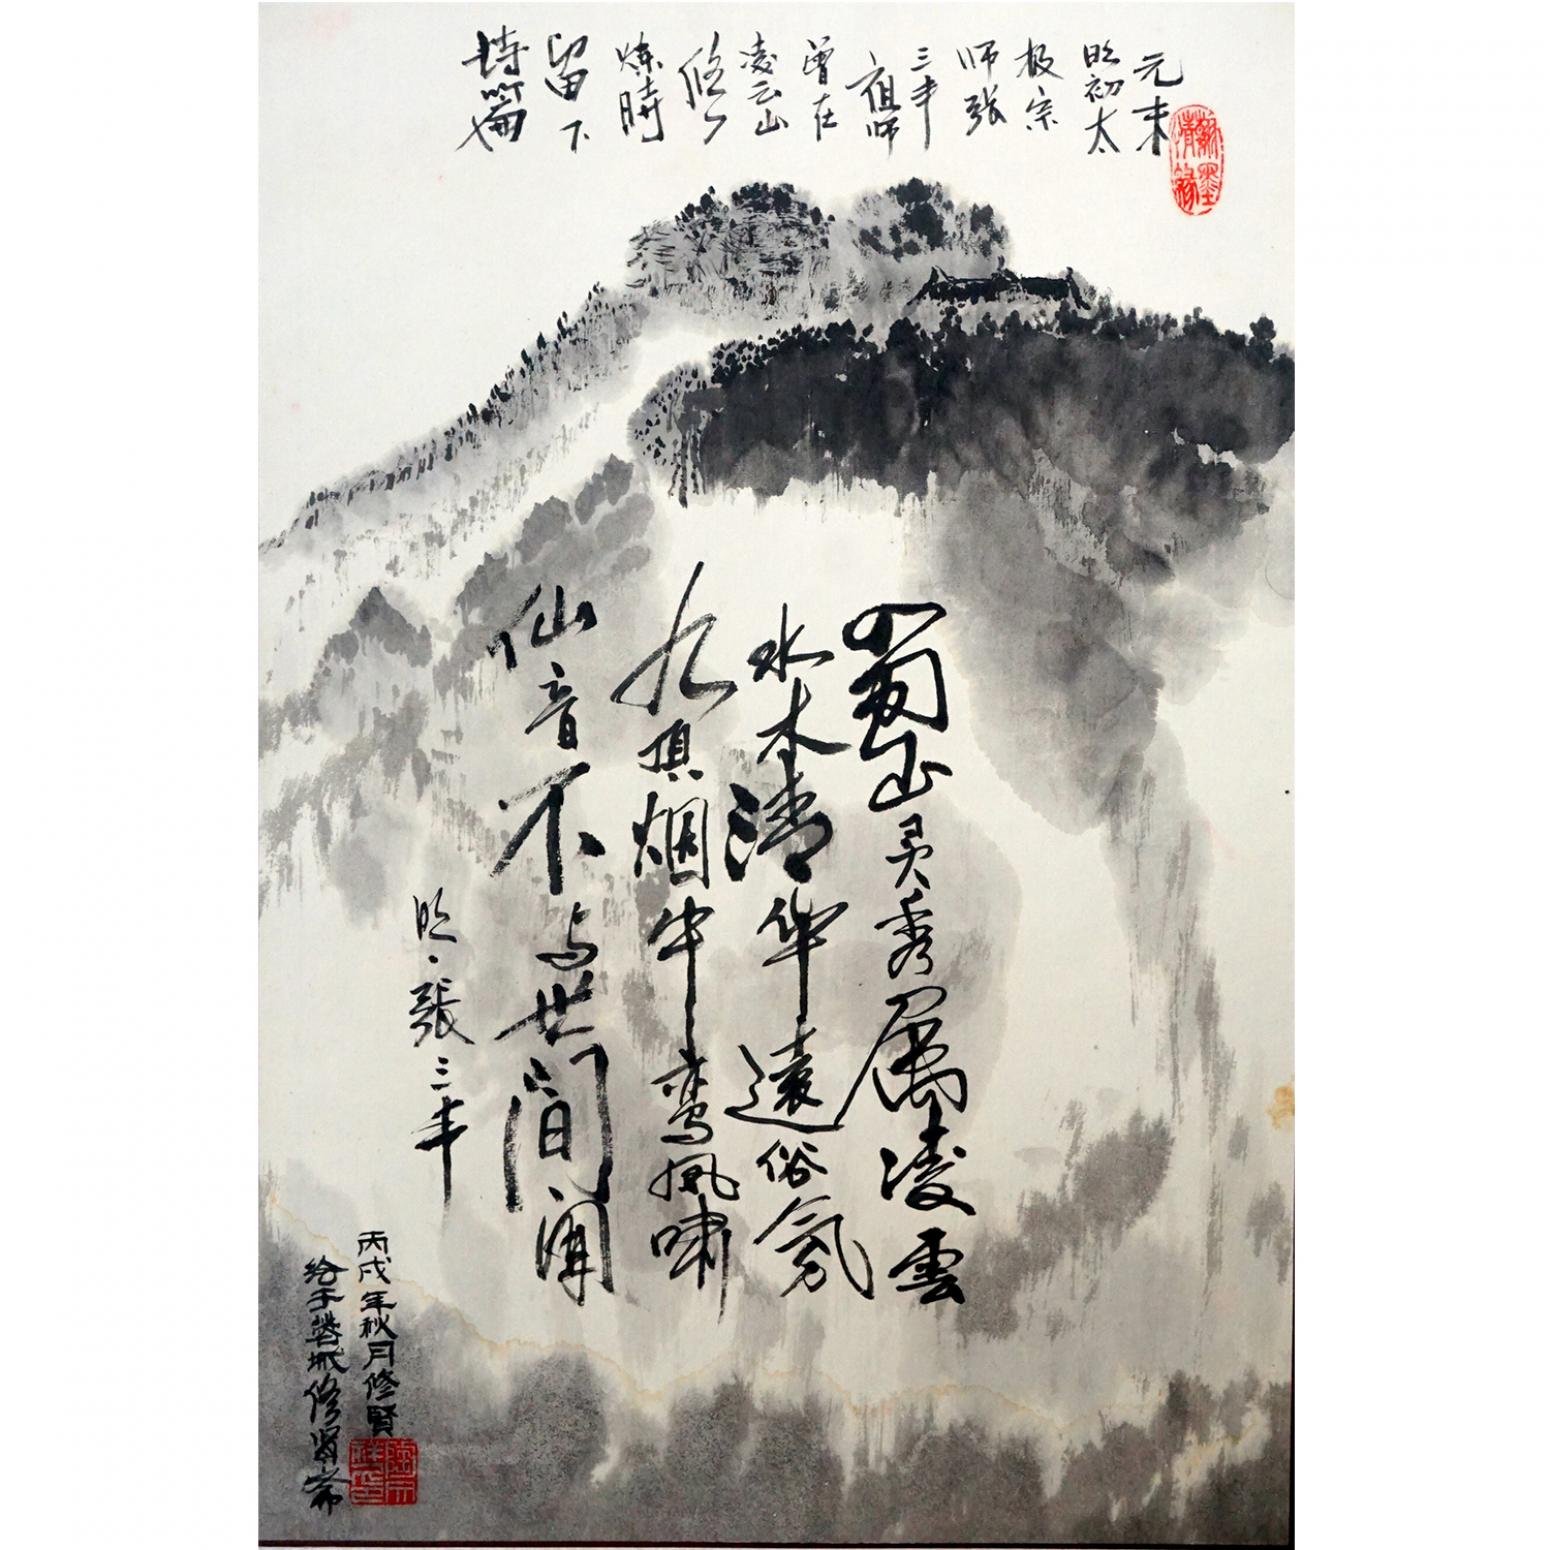 元末
明初太
极宗
师張
三丰
祖师
曾在
凌云山
修
炼時
留下
诗篇
翰墨情缘
蜀山灵秀属凌雲
水木清华遠俗氛
九顶烟中鸾凤啸
仙音不与世间闻
明·張三丰
丙戌年秋月修賢
绘于蓉城修贤斋